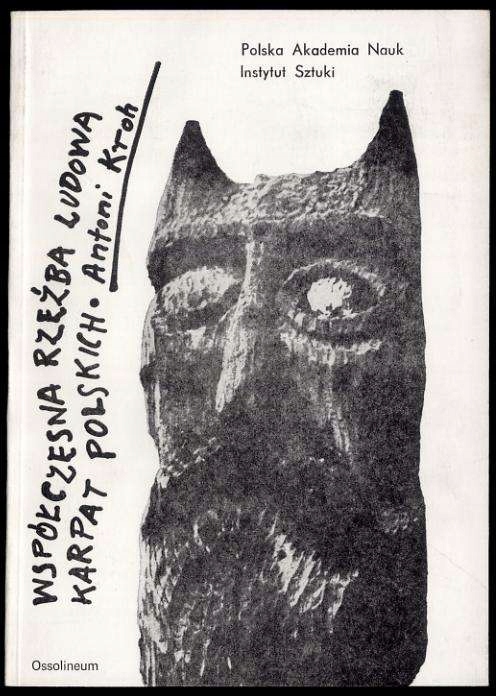 Polska Akademia Nauk
Instytut Sztuki
WSPÓŁCZESNA RZEŹBA LUDOWA
KARPAT POLSKICH · Antoni Kroh
Ossolineum